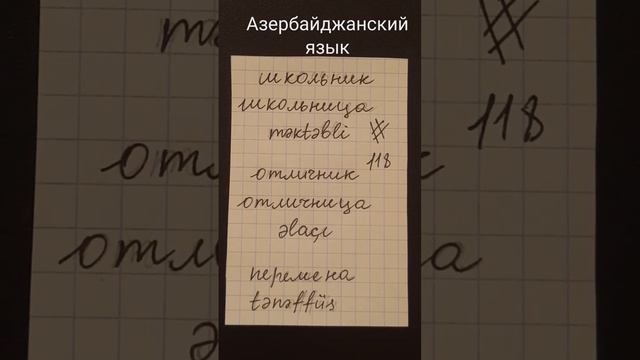 Азербайджанский
язык
школьник
школьница
məktəbli #
118
отличник
отличница
əlaçı
перемена
tənəffüs